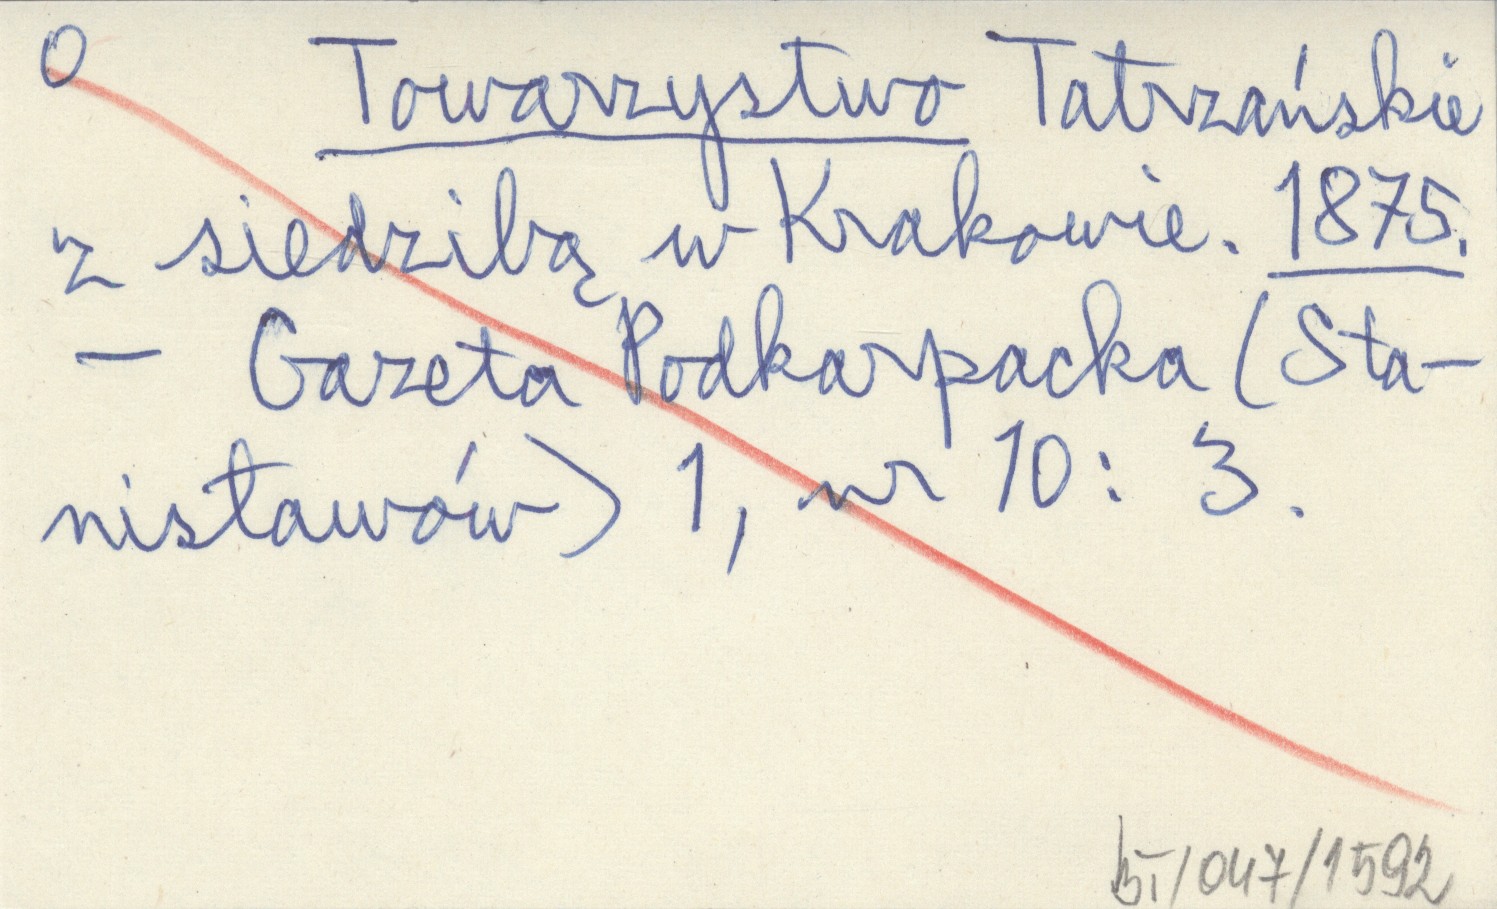 O Towarzystwo Tatrzańskie
z siedzibą w Krakowie. 1875.
— Gazeta Podkarpacka (Sta-
nisławów) 1, nr 10: 3.
BI/047/1592